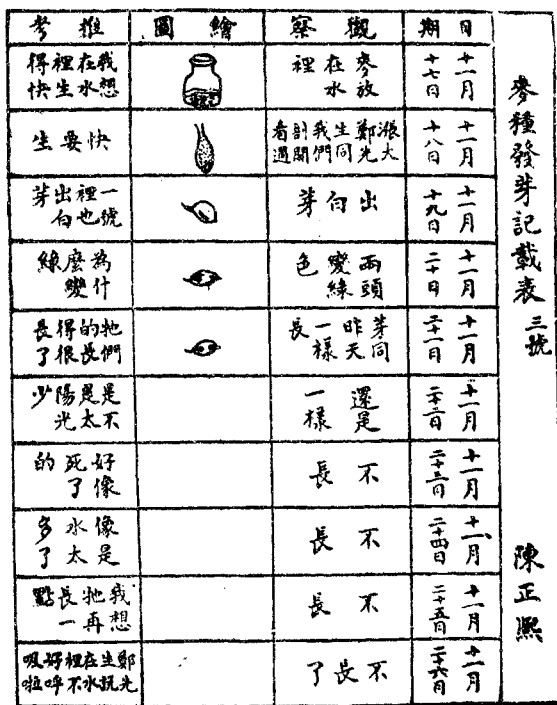 麥種發芽記載表 三號 陳正熙
日期
觀察
繪圖
推考
十一月
十七日
麥放
在水
裡
我想
在水
裡生
得快
十一月
十八日
漲大
鄭先
生同
我們
剖開
看過
快要生
十一月
十九日
出白芽
一號
裡也
出白
芽
十一月
二十日
兩頭
變綠
色
為什
麼變
綠
十一月
二十一日
芽同
昨天
一樣
長
牠們
的長
得很
長了
十一月
二十二日
還是
一樣
是不
是太
陽光
少
十一月
二十三日
不長
好像
死了
的
十一月
二十四日
不長
像是
水太
多了
十一月
二十五日
不長
我想
牠再
長一
點
十一月
二十六日
不長了
鄭先
生說
在水
裡不
好呼
吸啦